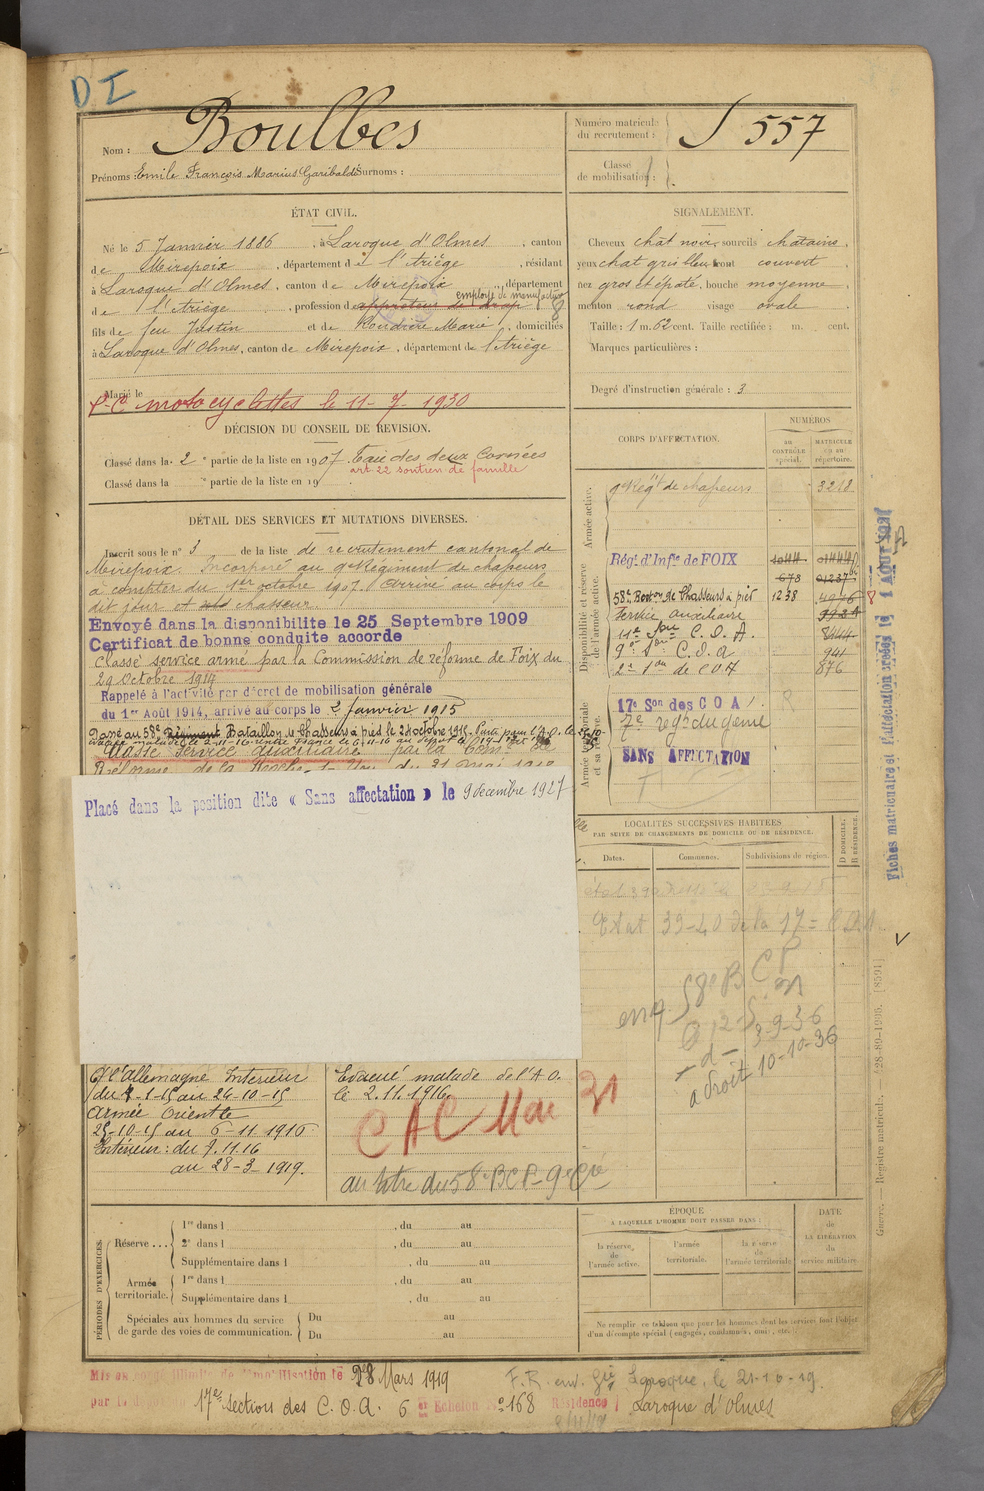 D I
Nom : Boulbes
Prénoms : Emile François Marius Garibaldi Surnoms :
Numéro matricule du recrutement : 557
Classe de mobilisation :
ÉTAT CIVIL.
Né le 5 Janvier 1886, à Laroque d'Olmes, canton
de Mirepoix, département de l'Ariège, résidant
à Laroque d'Olmes, canton de Mirepoix, département
employé de manufacture
de l'Ariège, profession d apprêteur de drap
fils de feu Justin et de Coudrère Marie, domiciliés
à Laroque d'Olmes, canton de Mirepoix, département de l'Ariège
Marié le
motocyclettes le 11-7-1930
SIGNALEMENT.
Cheveux chat noir, sourcils chatains,
yeux chat gris bleu, front couvert,
nez gros et épaté, bouche moyenne,
menton rond visage ovale.
Taille : 1 m. 62 cent. Taille rectifiée : m. cent.
Marques particulières :
Degré d'instruction générale : 3
DÉCISION DU CONSEIL DE REVISION.
Classé dans la 2e partie de la liste en 1907. Taie des deux Cornées
art 22 soutien de famille
Classé dans la e partie de la liste en 19
DÉTAIL DES SERVICES ET MUTATIONS DIVERSES.
Inscrit sous le n° 3 de la liste de recrutement cantonal de
Mirepoix. Incorporé au 9e Régiment de chasseurs
à compter du 1er octobre 1907. Arrivé au corps le
dit jour et chasseur.
Envoyé dans la disponibilité le 25 Septembre 1909
Certificat de bonne conduite accordé
Classé service armé par la Commission de réforme de Foix du
29 octobre 1914
Rappelé à l'activité par décret de mobilisation générale
du 1er Août 1914, arrivé au corps le 2 Janvier 1915
Passé au 58e Régiment Bataillon de Chasseurs à pied le 23 octobre 1915.
Classé Service Auxiliaire par la Com
Réforme de la Roche-s-Yon du 31 mai 1918
Placé dans la position dite « Sans affectation » le 9 décembre 1927
CORPS D'AFFECTATION.
NUMÉROS
au CONTRÔLE spécial.
MATRICULE ou au répertoire.
Armée active.
9e Régt de chasseurs 3218
Disponibilité et réserve de l'armée active.
Régt. d'Infie de FOIX 1044
678 01237
58e Baton de Chasseurs à pied 1238
Service auxiliaire
C. O. A. 8444
9e Son C. O. A 941
2e Son de C.O.A 876
Armée territoriale et sa réserve.
17e Son des C O A
7e regt du génie
SANS AFFECTATION
Fiches matriculaire et d'affectation créées le 1 AOUT
LOCALITÉS SUCCESSIVES HABITÉES
PAR SUITE DE CHANGEMENTS DE DOMICILE OU DE RÉSIDENCE.
Dates. Communes. Subdivisions de région. D DOMICILE. R RÉSIDENCE.
Etat 39-40 de la 17e C.O.A
58e B C P
3-9-36
à droit 10-10-36
C/ l'allemagne Intérieur
du 2-1-15 au 24-10-15
Armée Orientle
25-10-15 au 6-11-1916
Intérieur : du 7.11.16
au 28-3-1919.
Evacué malade de l'A O.
le 2.11.1916
CAC 31
au titre du 58e BCP-9e Cie
PÉRIODES D'EXERCICES.
Réserve ... 1re dans l , du au
2e dans l , du au
Supplémentaire dans l , du au
Armée territoriale. 1re dans l , du au
Supplémentaire dans l , du au
Spéciales aux hommes du service de garde des voies de communication. Du au
Du au
ÉPOQUE
À LAQUELLE L'HOMME DOIT PASSER DANS :
la réserve de l'armée active.
l'armée territoriale.
la réserve de l'armée territoriale
DATE de LA LIBÉRATION du service militaire
Ne remplir ce tableau que pour les hommes dont les services font l'objet
d'un décompte spécial (engagés, condamnés, omis, etc.
Guerre. — Registre matricul.
Mis en congé illimité de démobilisation le 28 Mars 1919
par le dépôt 17e Section des C. O. A. 6e Echelon N° 168 Résidence Laroque d'Olmes
F. R. env. Gie Laroque, le 21-10-19.